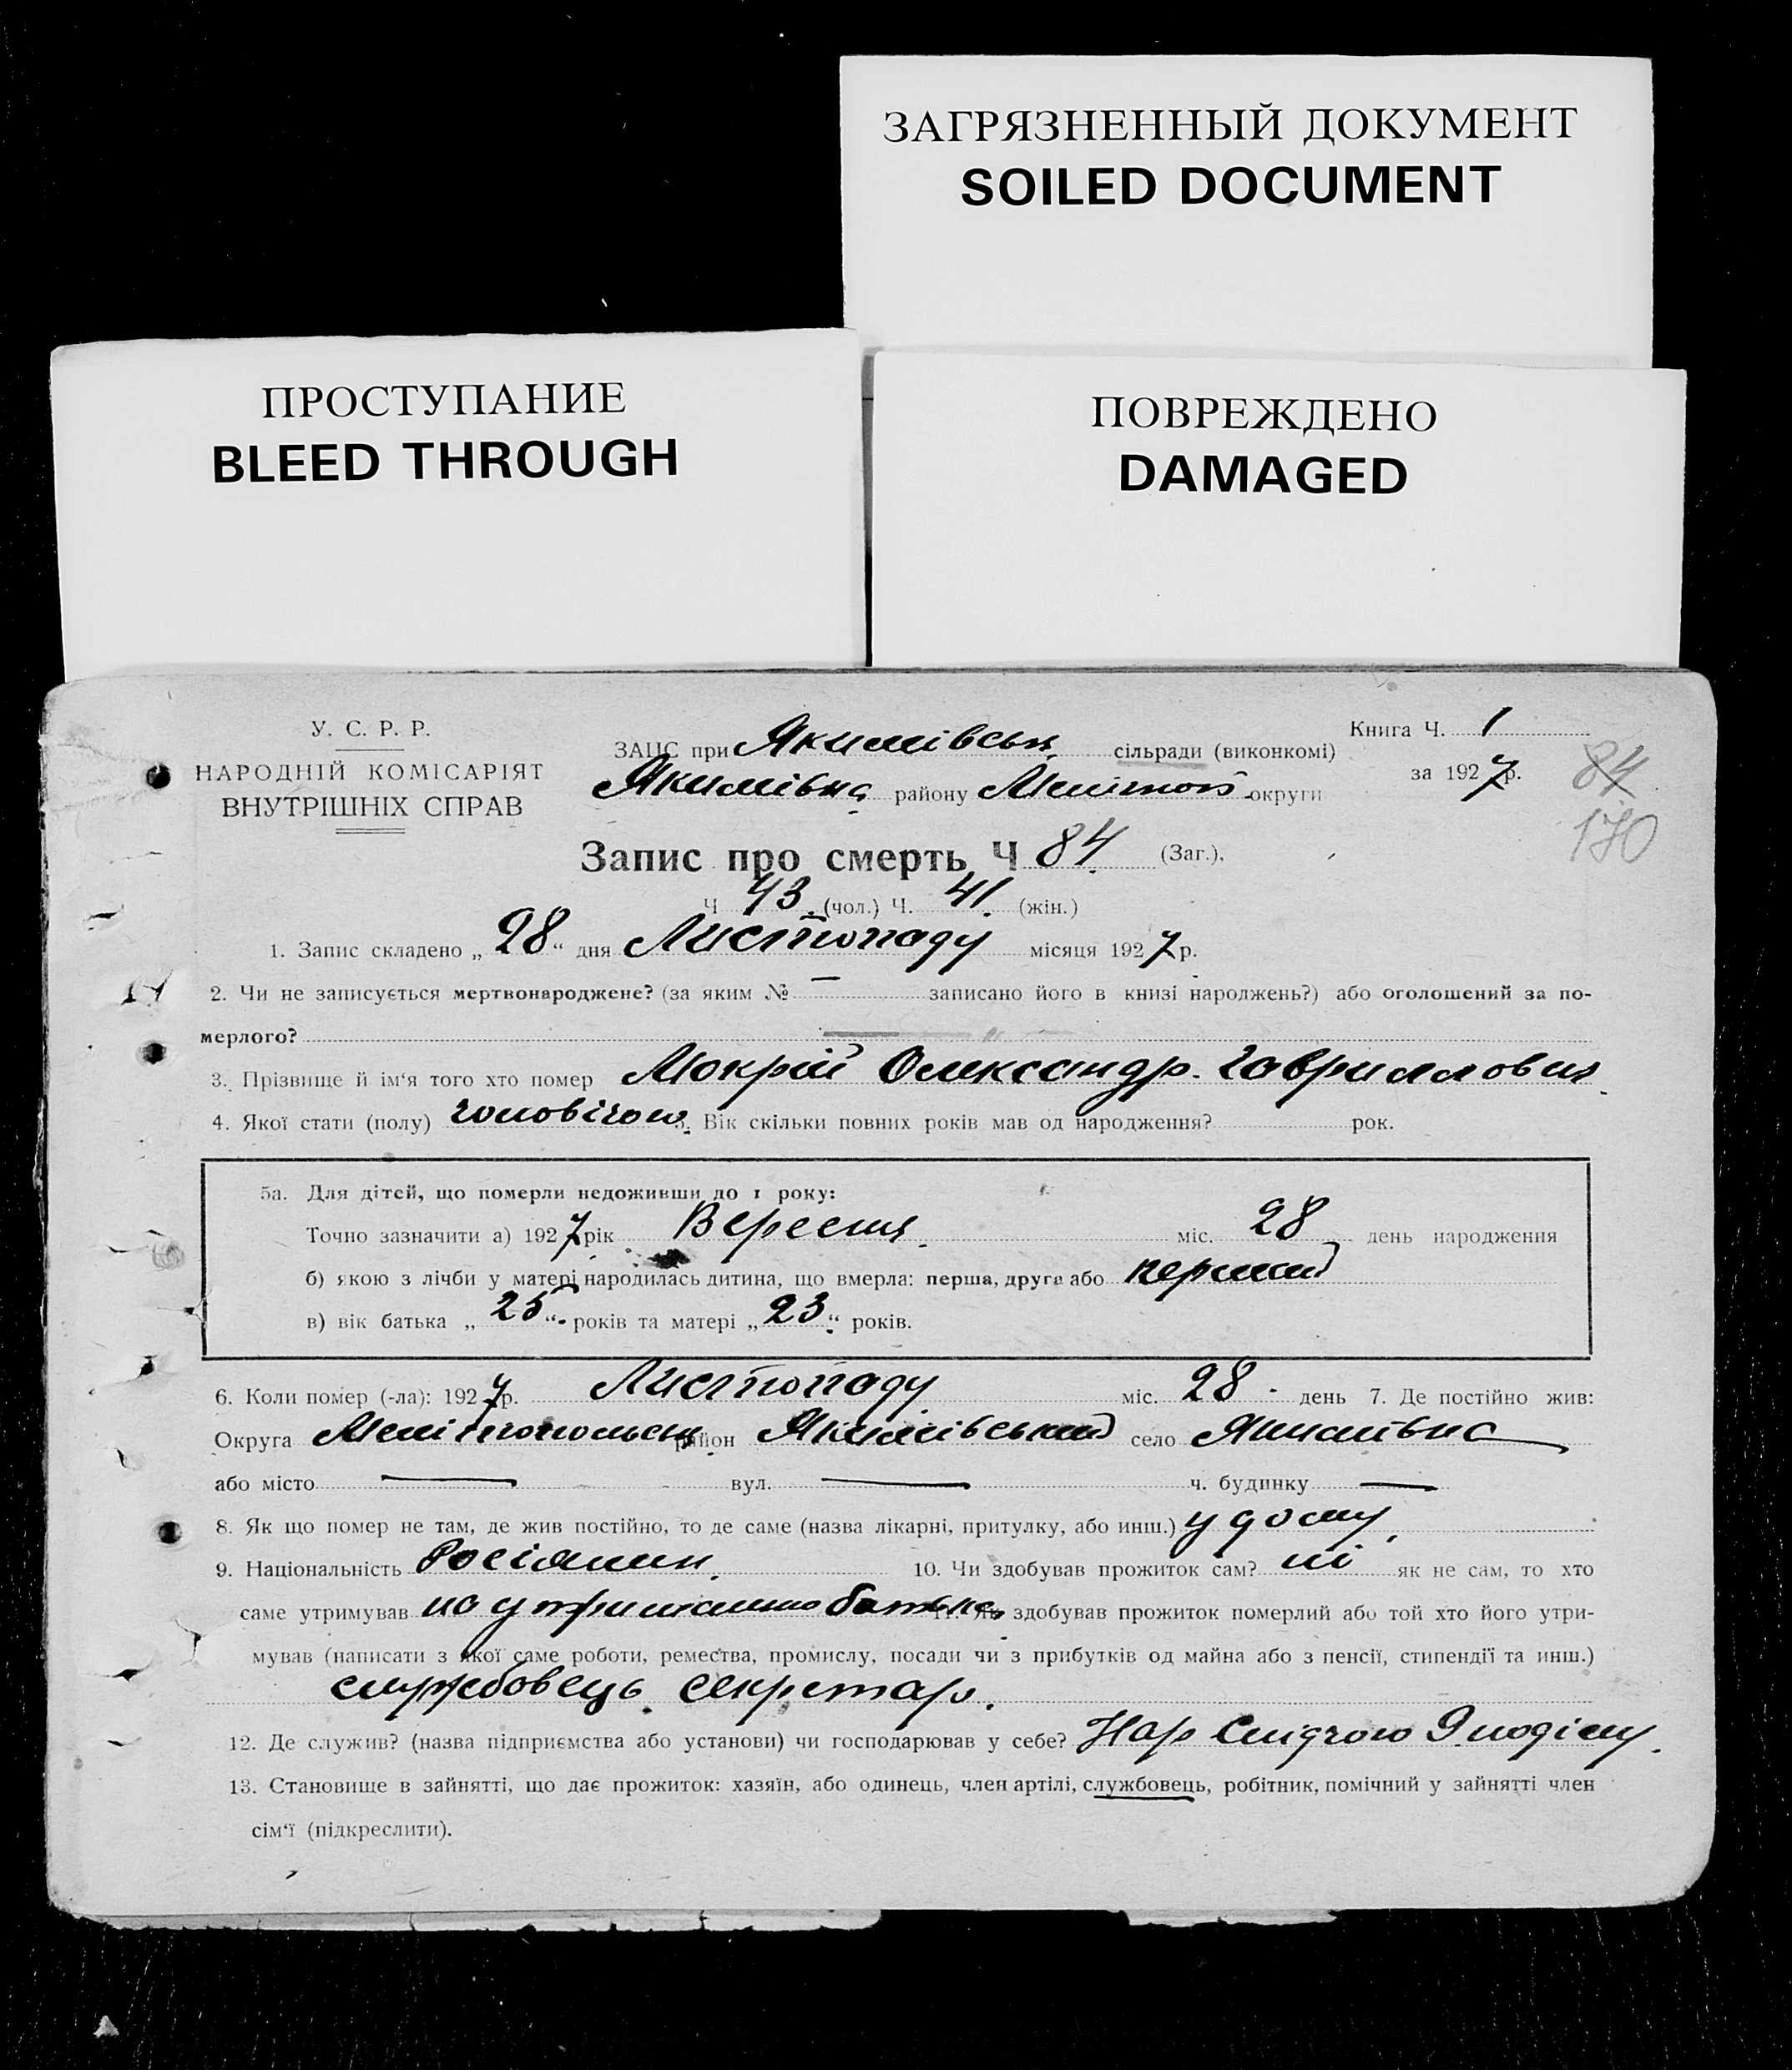 ЗАГРЯЗНЕННЫЙ ДОКУМЕНТ
SOILED DOCUMENT
ПРОСТУПАНИЕ
BLEED THROUGH
ПОВРЕЖДЕНО
DAMAGED
У. С. Р. Р.
НАРОДНІЙ КОМІСАРІЯТ
ВНУТРІШНІХ СПРАВ
ЗАЦС при Якимівськ. сільради (виконкомі)
Якимівка району Меліт. округи
Книга Ч. 1
за 1927 р.
84
170
Запис про смерть Ч 84 (Заг.),
Ч 43 (чол.) Ч. 41 (жін.)
1. Запис складено „28“ дня Листопаду місяця 1927 р.
2. Чи не записується мертвонароджене? (за яким № — записано його в книзі народжень?) або оголошений за по-
мерлого?
3. Прізвище й ім‘я того хто помер Мокрій Олександр Гавриллович
4. Якої стати (полу) чоловічої 5. Вік скільки повних років мав од народження? рок.
5а. Для дітей, що померли недоживши до 1 року:
Точно зазначити а) 1927 рік Вересня міс. 28 день народження
б) якою з лічби у матері народилась дитина, що вмерла: перша, друга або перший
в) вік батька „25“ років та матері „23“ років.
6. Коли помер (-ла): 1927 р. Листопаду міс. 28 день 7. Де постійно жив:
Округа Мелітопольськ район Якимівський село Якимівка
або місто — вул. — ч. будинку —
8. Як що помер не там, де жив постійно, то де саме (назва лікарні, притулку, або инш.) у дому
9. Національність Росіянин 10. Чи здобував прожиток сам? ні як не сам, то хто
саме утримував на утриманню батька 11. Як здобував прожиток померлий або той хто його утри-
мував (написати з якої саме роботи, ремества, промислу, посади чи з прибутків од майна або з пенсії, стипендії та инш.)
службовець секретарь.
12. Де служив? (назва підприємства або установи) чи господарював у себе? Нар Слідчого
13. Становище в зайнятті, що дає прожиток: хазяїн, або одинець, член артілі, службовець, робітник, помічний у зайнятті член
сім‘ї (підкреслити).